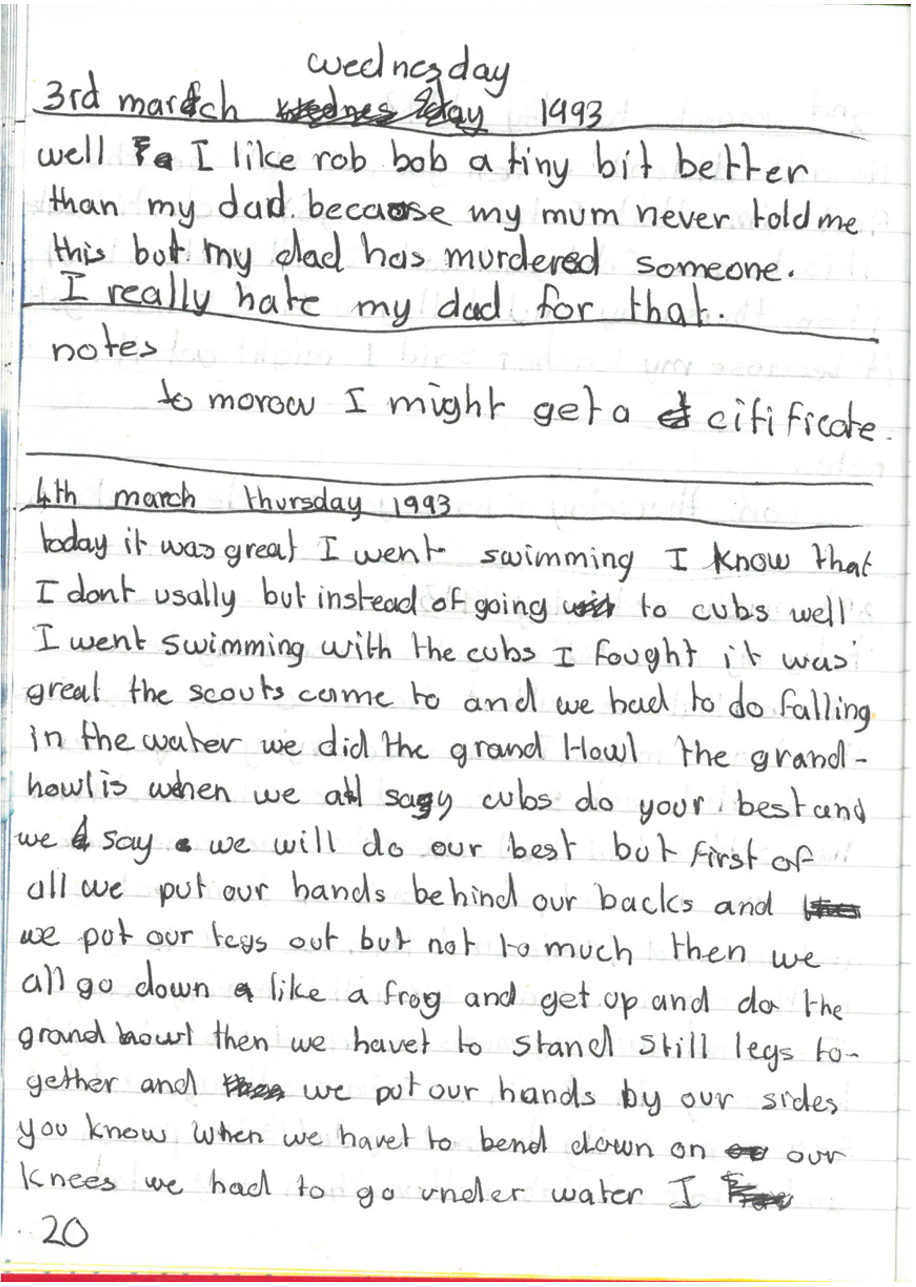 wednesday
3rd march day 1993
well I like rob bob a tiny bit better
than my dad. because my mum never told me
this but my dad has murdered someone.
I really hate my dad for that.
notes
to morow I might get a citificate.
4th march thursday 1993
today it was great I went swimming I know that
I dont usally but instead of going to cubs well
I went swimming with the cubs I fought it was
great the scouts came to and we had to do falling
in the water we did the grand Howl the grand-
howl is when we all say cubs do your best and
we say we will do our best but first of
all we put our hands behind our backs and
we pot our legs out but not to much then we
all go down like a frog and get up and do the
grand howl then we havet to stand still legs to-
gether and we put our hands by our sides
you know when we havet to bend down on our
knees we had to go under water I
20